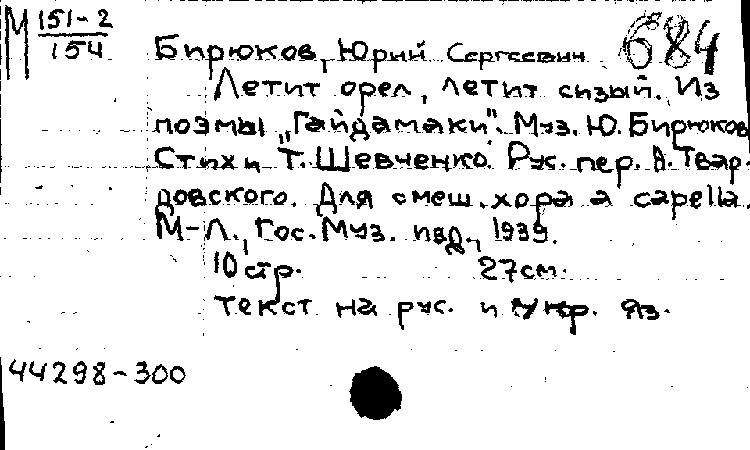 М 151-2
154
684
Бирюков, Юрий Сергеевич
Летит орел, летит сизый. Из
поэмы "Гайдамаки". Муз. Ю. Бирюков
Стихи Т. Шевченко. Рус. пер. А. Твар-
довского. Для смеш. хора a capella.
М-Л., Гос. Муз. изд., 1939.
10 стр. 27 см.
текст на рус. и укр. яз.
44298-300